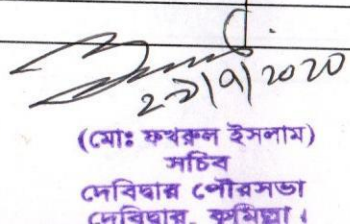 ২৯/৭/2020
(মোঃ ফখরুল ইসলাম)
সচিব
দেবিদ্বার পৌরসভা
দেবিদ্বার, কুমিল্লা।